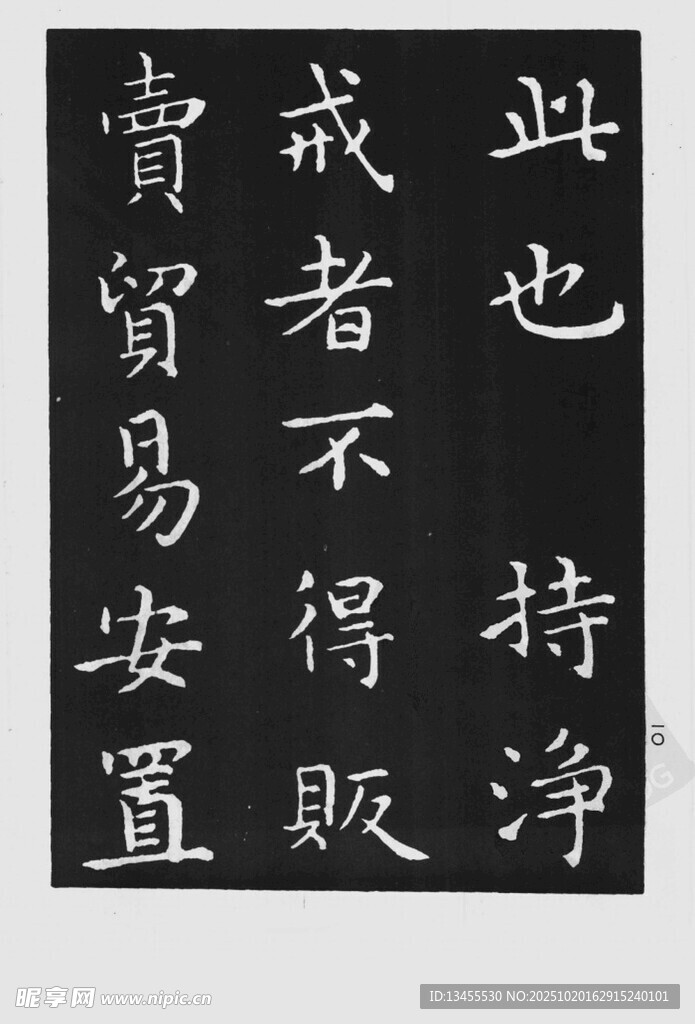 此也 持淨
戒者不得販
賣貿易安置
一〇
昵享网 www.nipic.cn
ID:13455530 NO:20251020162915240101